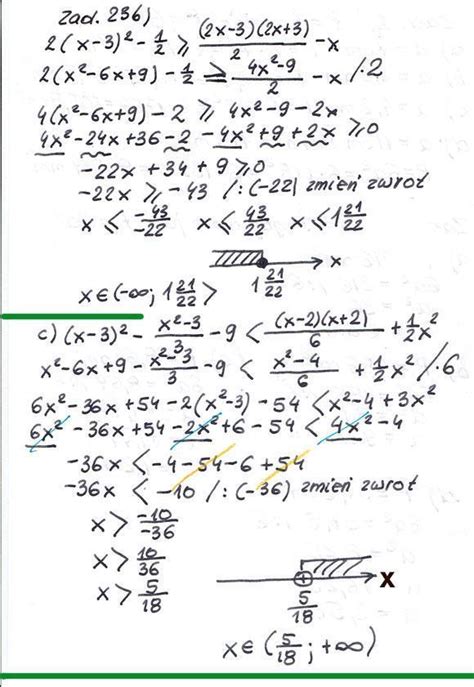 Zad. 236)
2(x-3)² - 1/2 ⩾ (2x-3)(2x+3)/2 - x
2(x²-6x+9) - 1/2 ⩾ 4x²-9/2 - x /·2
4(x²-6x+9) - 2 ⩾ 4x²-9-2x
4x²-24x+36-2-4x²+9+2x ⩾ 0
-22x+34+9 ⩾ 0
-22x ⩾ -43 /:(-22) zmień zwrot
x ⩽ -43/-22 x ⩽ 43/22 x ⩽ 1 21/22
x
1 21/22
x∈(-∞; 1 21/22 >
c) (x-3)² - x²-3/3 - 9 < (x-2)(x+2)/6 + 1/2 x²
x²-6x+9 - x²-3/3 - 9 < x²-4/6 + 1/2 x² /·6
6x²-36x+54-2(x²-3)-54 < x²-4+3x²
6x²-36x+54-2x²+6-54 < 4x²-4
-36x < -4-54-6+54
-36x < -10 /:(-36) zmień zwrot
x > -10/-36
x > 10/36
x > 5/18
x
5/18
x∈(5/18; +∞)